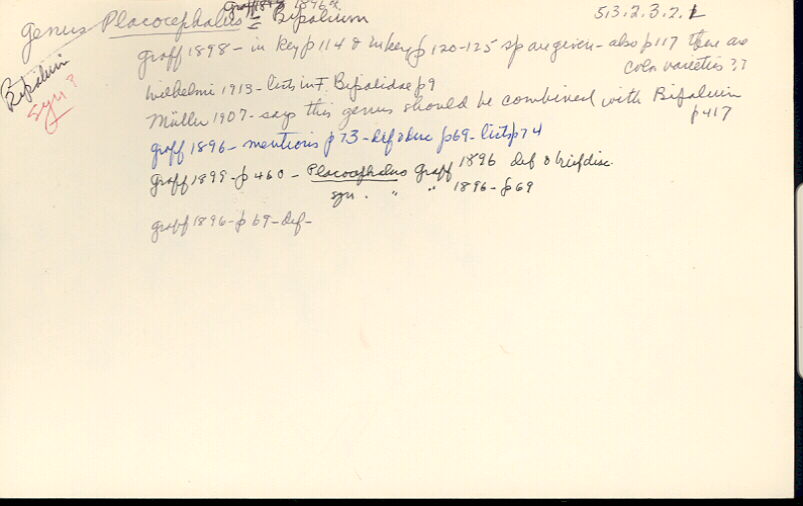 Graff 1898 1896
Genus Placocephalus = Bipalium 5.3.2.3.2.1
Bipalium
syn?
Graff 1898 - in key p 114 & in key p 120-125 sp are given - also p 117 there as
color varieties??
Wilhelmi 1913 - lists in F. Bipalidae p 9
Müller 1907 - says this genus should be combined with Bipalium
p 417
Graff 1896 - mentions p 73 - def & disc p 69 - lists p 74
Graff 1899 - p 460 - Placocephalus Graff 1896 def & brief disc.
syn. " " 1896 - p 69
Graff 1896 - p 69 - def -